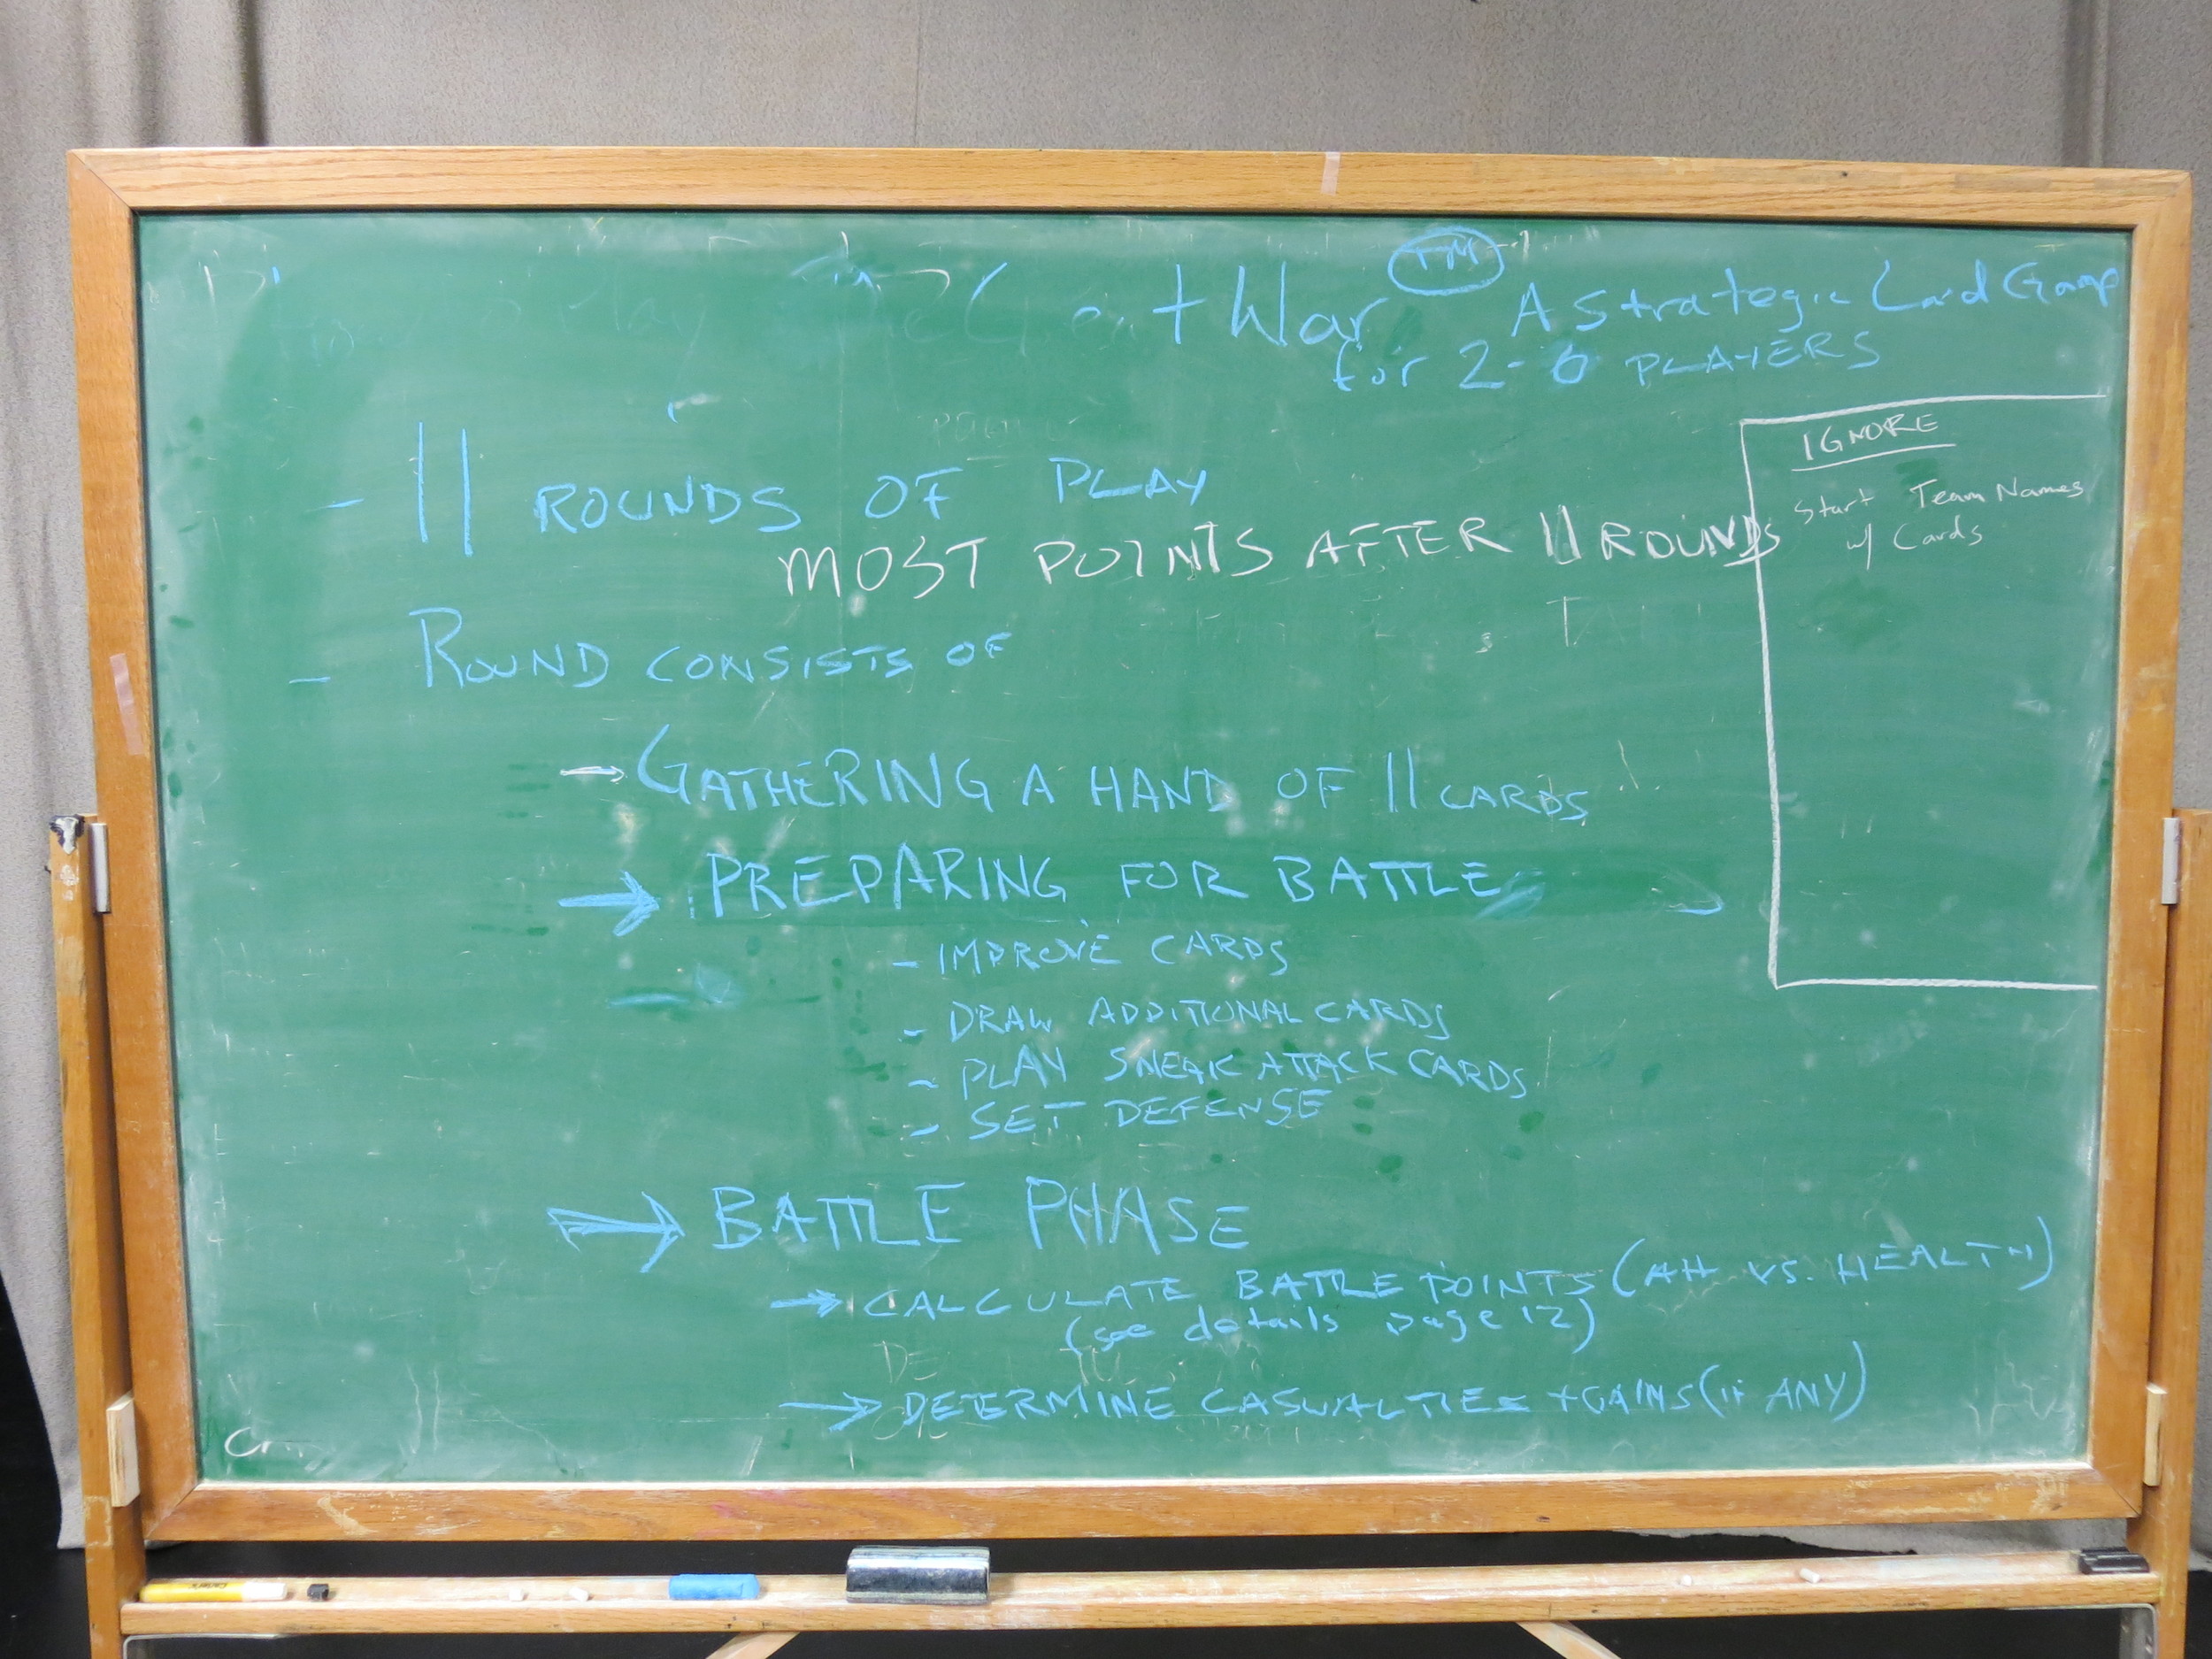 How to Play The Great War TM A Strategic Card Game
for 2-6 PLAYERS
- 11 ROUNDS OF PLAY
MOST POINTS AFTER 11 ROUNDS
IGNORE
Start Team Names
w/ Cards
- ROUND CONSISTS OF
→ GATHERING A HAND OF 11 CARDS
→ PREPARING FOR BATTLE
- IMPROVE CARDS
- DRAW ADDITIONAL CARDS
- PLAY SNEAK ATTACK CARDS
- SET DEFENSE
→ BATTLE PHASE
→ CALCULATE BATTLE POINTS (AH VS. HEALTH)
(see details page 12)
→ DETERMINE CASUALTIES + GAINS (IF ANY)